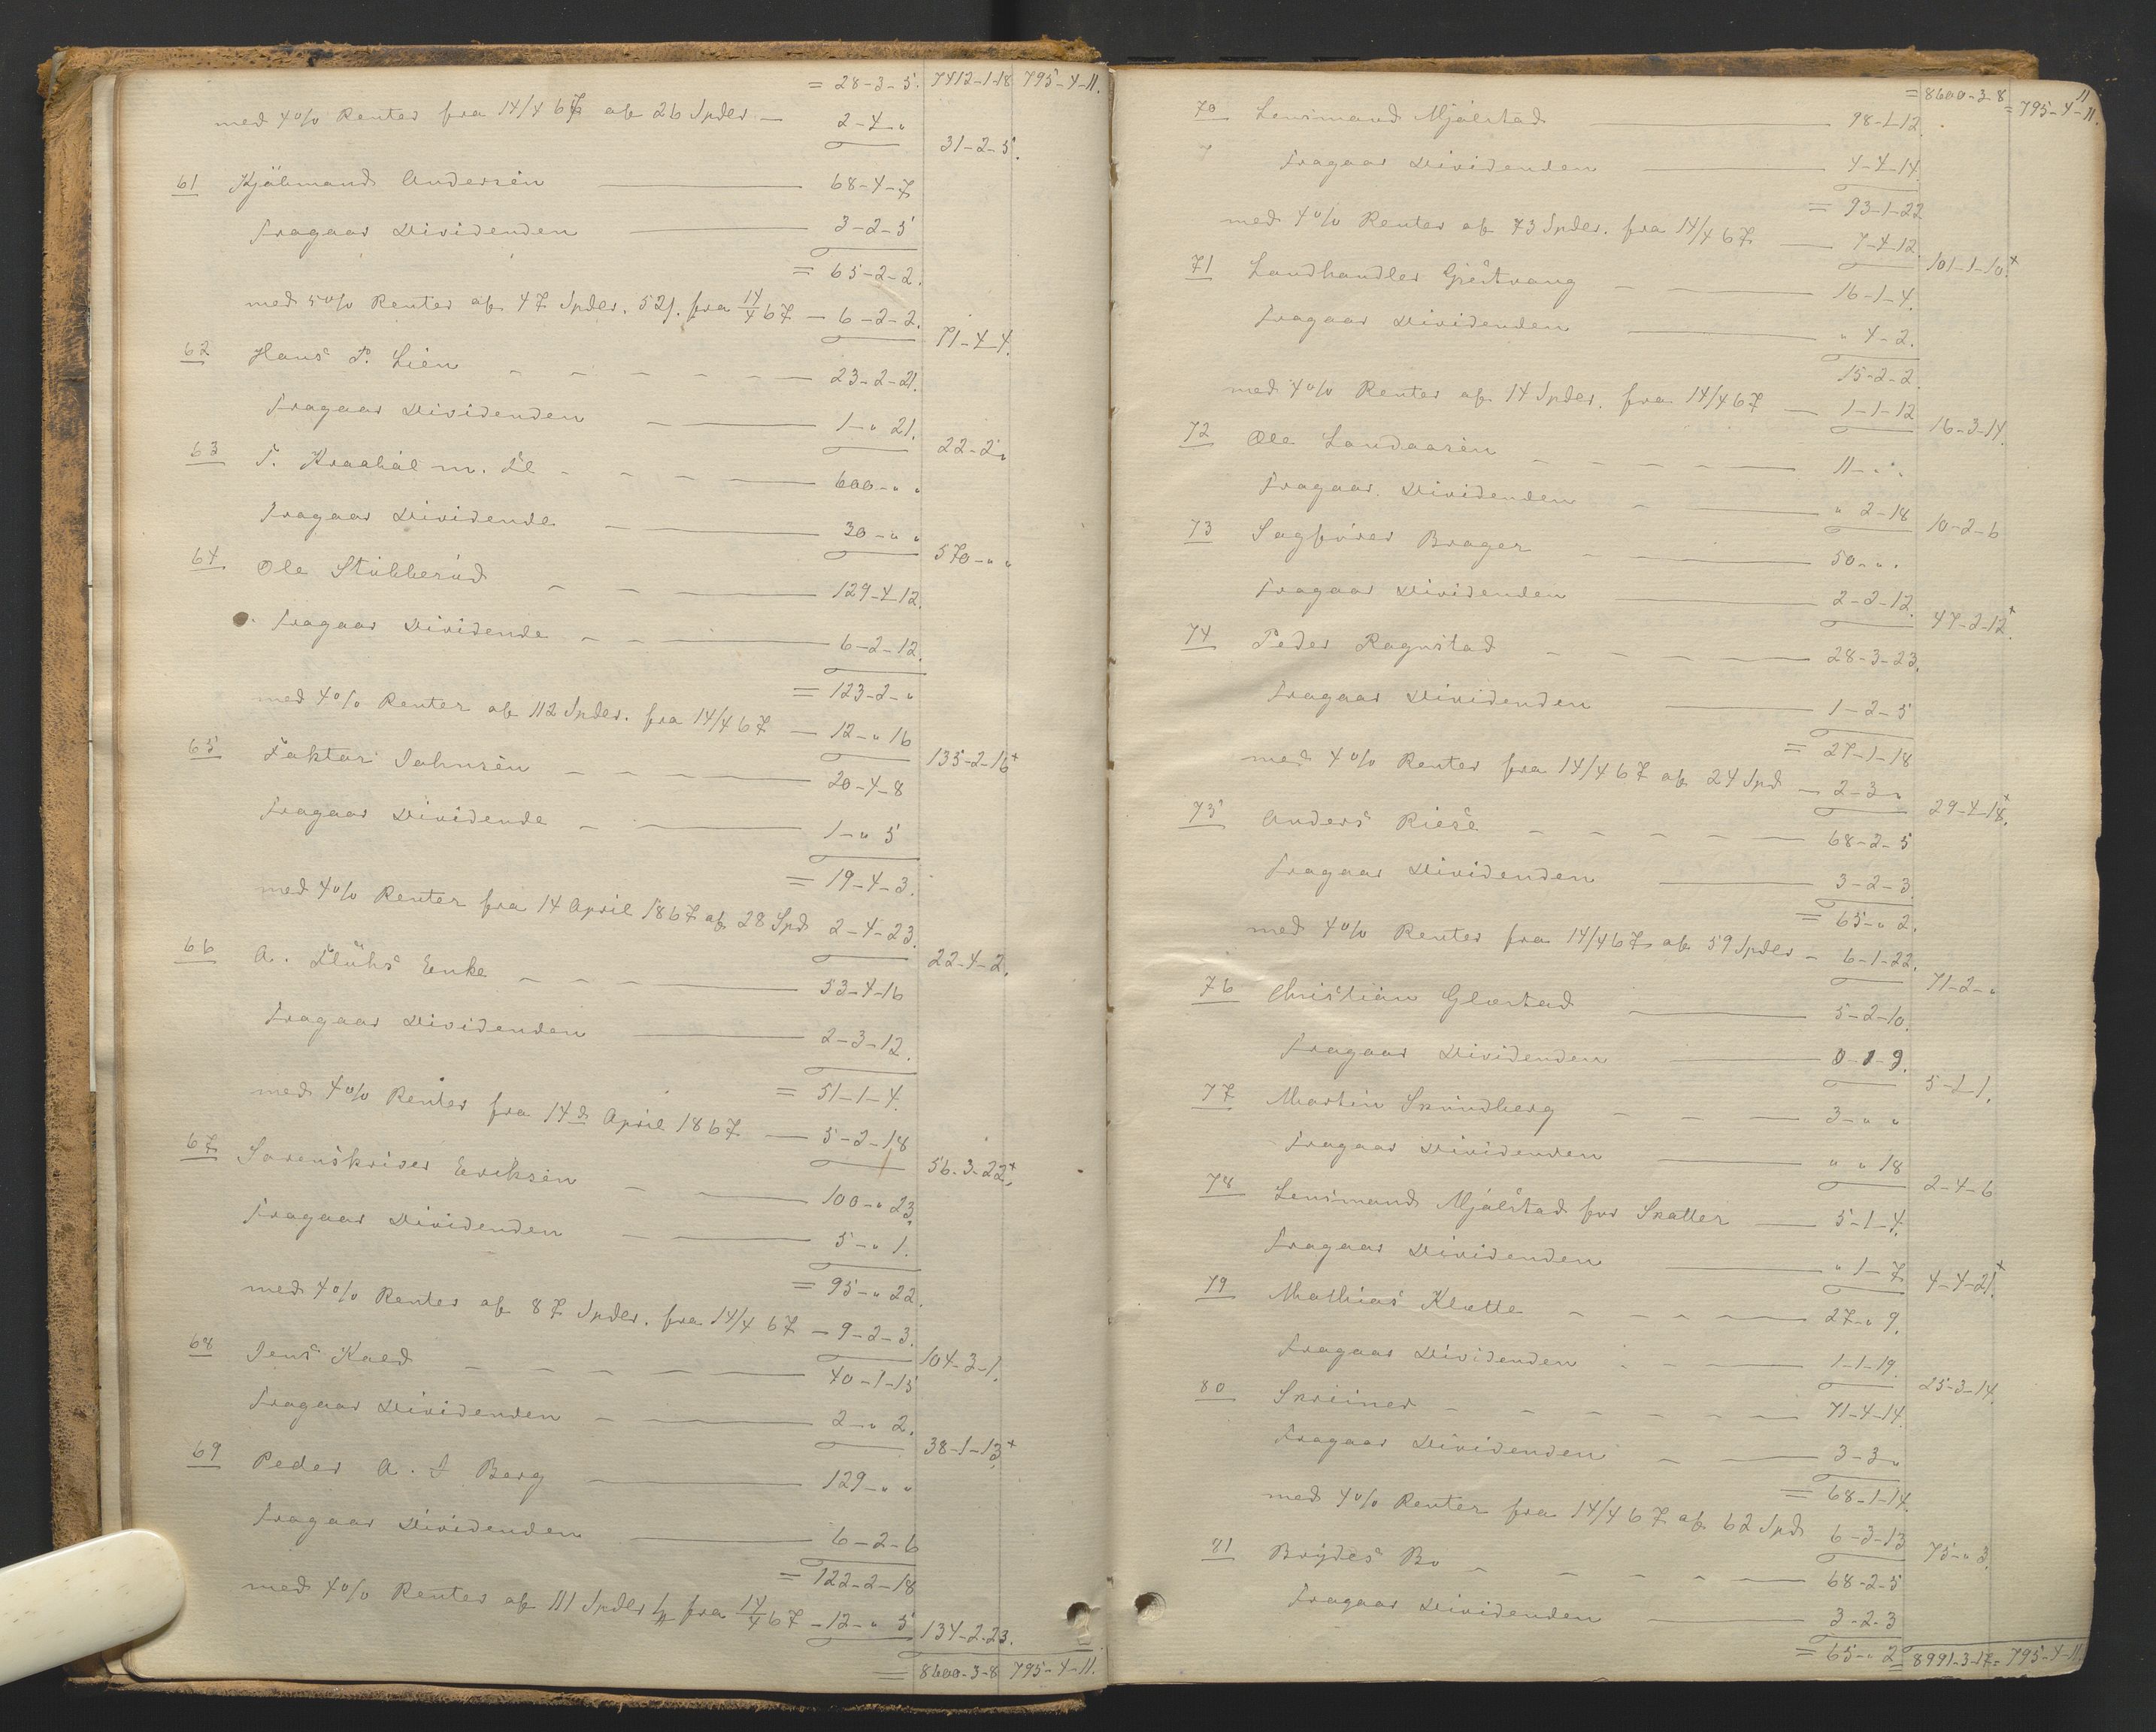 = 28-3-5. 7412-1-18 795-4-11.
med 4% Renter fra 14/4 67 af 26 Spdlr. — 2-4-"
31-2-5.
61 Kjøbmand Andersen — 68-4-7
Fragaar Dividenden — 3-2-5
= 65-2-2.
med 5% Renter af 47 Spdlr. 52ſ. fra 14/4 67 — 6-2-2.
71-4-4.
62 Hans P. Lien — 23-2-21.
Fragaar Dividenden — 1-" 21.
22-2-"
63 T. Kraabøl m. Fl — 600-" "
Fragaar Dividende — 30-" "
570-" "
64 Ole Stubberud — 129-4-12.
Fragaar Dividende — 6-2-12.
= 123-2-"
med 4% Renter af 112 Spdlr. fra 14/4 67 — 12-" 16
135-2-16+
65 Faktor Johnsen — 20-4-8
Fragaar Dividende — 1-" 5
= 19-4-3.
med 4% Renter fra 14 April 1867 af 28 Spd 2-4-23.
22-4-2.
66 A. Flühs Enke — 53-4-16
Fragaar Dividenden — 2-3-12.
= 51-1-4.
med 4% Renter fra 14d April 1867 — 5-2-18
56-3-22+
67 Sorenskriver Eriksen — 100-" 23.
Fragaar Dividenden — 5-" 1.
= 95-" 22.
med 4% Renter af 87 Spdlr. fra 14/4 67 — 9-2-3.
104-3-1.
68 Jens Kaed — 40-1-15
Fragaar Dividenden — 2-" 2.
38-1-13+
69 Peder A. S Berg — 129-" "
Fragaar Dividenden — 6-2-6
= 122-2-18
med 4% Renter af 111 Spdlr fra 14/4 67 — 12-" 5
134-2-23.
= 8600-3-8 795-4-11.
= 8600-3-8 = 795-4-11.
70 Lensmand Mjølstad — 98-1-12.
Fragaar Dividenden — 4-4-14.
= 93-1-22
med 4% Renter af 73 Spdlr. fra 14/4 67 — 7-4-12
101-1-10+
71 Landhandler Gjestvang — 16-1-4.
Fragaar Dividenden — " 4-2.
15-2-2.
med 4% Renter af 14 Spdlr. fra 14/4 67 — 1-1-12
16-3-14.
72 Ole Landaasen — 11-" "
Fragaar Dividenden — " 2-18
10-2-6
73 Sagfører Brager — 50-" "
Fragaar Dividenden — 2-2-12.
47-2-12+
74 Peder Rognstad — 28-3-23.
Fragaar Dividenden — 1-2-5
= 27-1-18
med 4% Renter fra 14/4 67 af 24 Spd — 2-3-"
29-4-18+
75 Anders Riese — 68-2-5
Fragaar Dividenden — 3-2-3
= 65-" 2.
med 4% Renter fra 14/4 67 af 59 Spdlr — 6-1-22.
71-2-"
76 Christian Glæstad — 5-2-10.
Fragaar Dividenden — 0-1-9.
5-1-1.
77 Martin Sprundberg — 3-" "
Fragaar Dividenden — " " 18
2-4-6
78 Lensmand Mjølstad for Skatter — 5-1-4.
Fragaar Dividenden — " 1-7.
4-4-21+
79 Mathias Klætte — 27-" 9.
Fragaar Dividenden — 1-1-19.
25-3-14.
80 Skriiner — 71-4-14.
Fragaar Dividenden — 3-3-"
= 68-1-14.
med 4% Renter fra 14/4 67 af 62 Spd 6-3-13
75-" 3.
81 Brydes Bo — 68-2-5
Fragaar Dividenden — 3-2-3
= 65-" 2 = 8991-3-17 = 795-4-11.